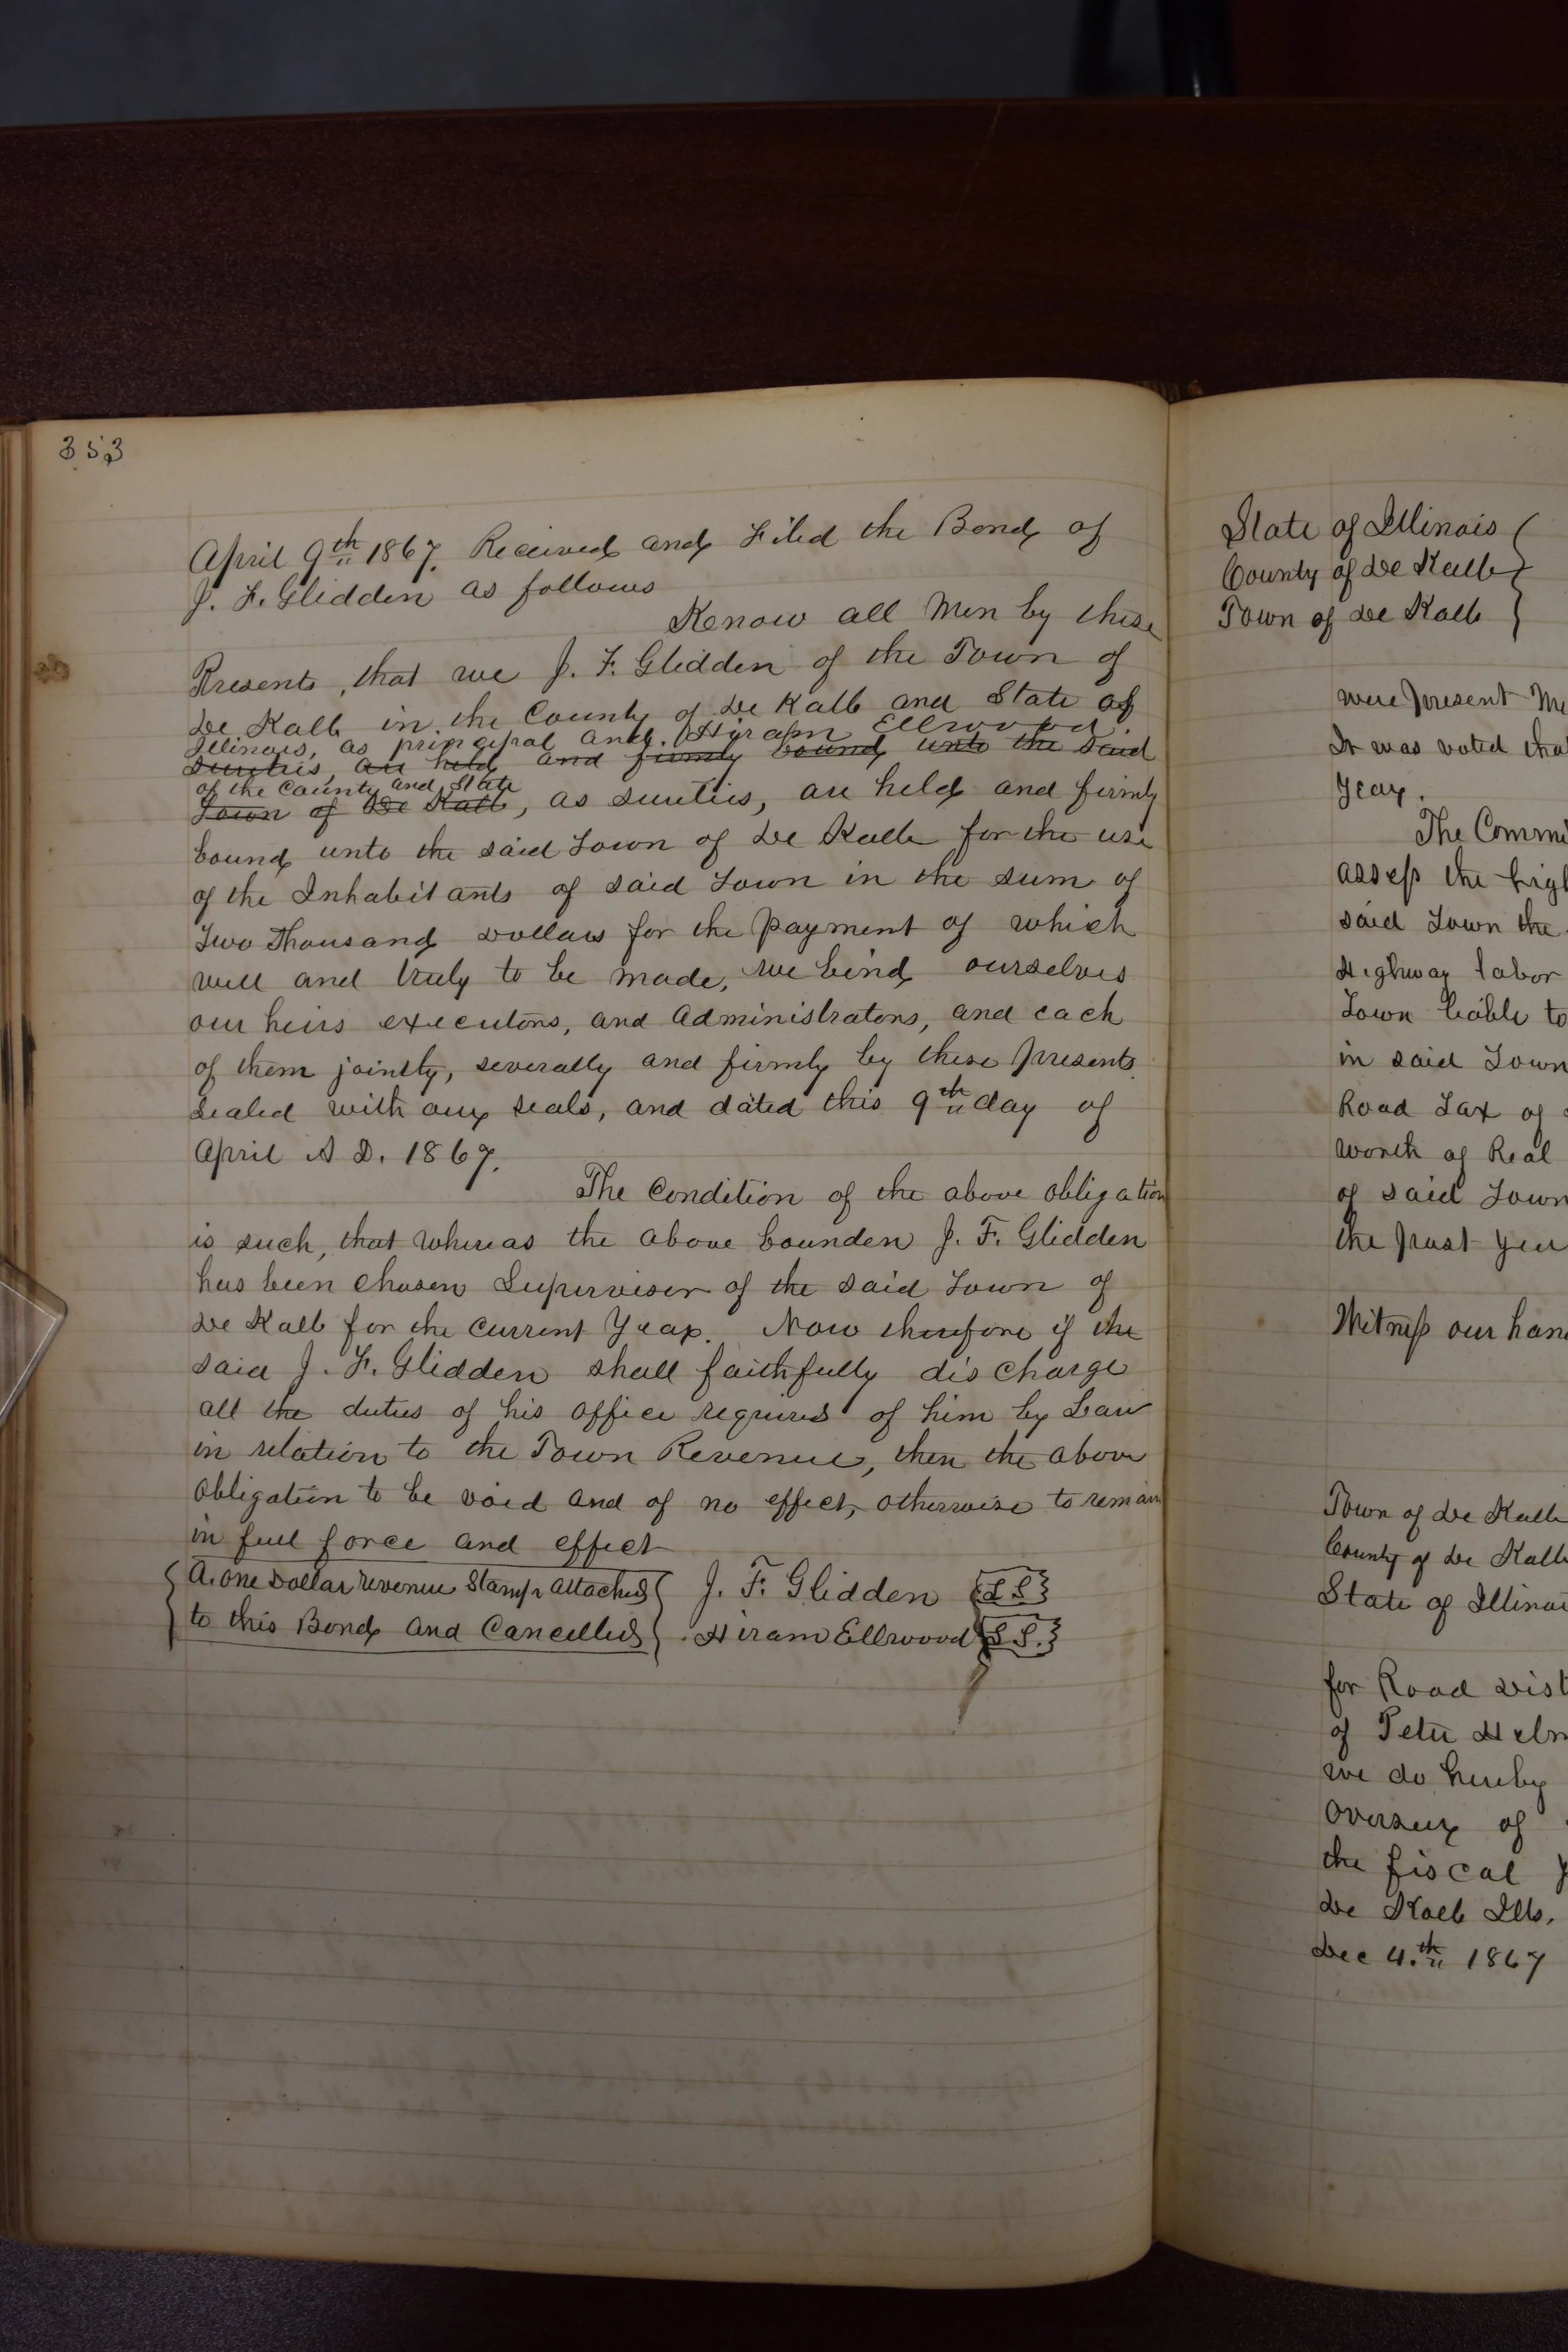 353
April 9th 1867. Received and Filed the Bond of
J. F. Glidden as follows
Know all Men by these
Presents, that we J. F. Glidden of the Town of
De Kalb in the County of De Kalb and State of
Illinois, as principal and Hiram Ellwood
sureties, are held and firmly bound unto the said
of the County and State
Town of De Kalb, as sureties, are held and firmly
bound unto the said Town of De Kalb for the use
of the Inhabitants of said Town in the sum of
Two Thousand Dollars for the payment of which
well and truly to be made, we bind ourselves
our heirs executors, and administrators, and each
of them jointly, severally and firmly by these presents
Sealed with our seals, and dated this 9th day of
April A D. 1867.
The Condition of the above obligation
is such, that whereas the above bounden J. F. Glidden
has been chosen Supervisor of the said Town of
De Kalb for the current Year. Now therefore if the
said J. F. Glidden shall faithfully discharge
all the duties of his office required of him by Law
in relation to the Town Revenue, then the above
obligation to be void and of no effect, otherwise to remain
in full force and effect
A. one Dollar revenue Stamp attached
to this Bond and Cancelled
J. F. Glidden {L S}
Hiram Ellwood {L S.}
State of Illinois
County of De Kalb
Town of De Kalb
were present
It was voted
Year.
The
assess the
said Town the
Highway labor
Town liable to
in said Town
Road Tax of
worth of Real
of said Town
the past
Witness our
Town of De Kalb
County of De Kalb
State of
for Road
of Peter
we do hereby
Overseer of
the fiscal
De Kalb Ills.
Dec 4.th 1867